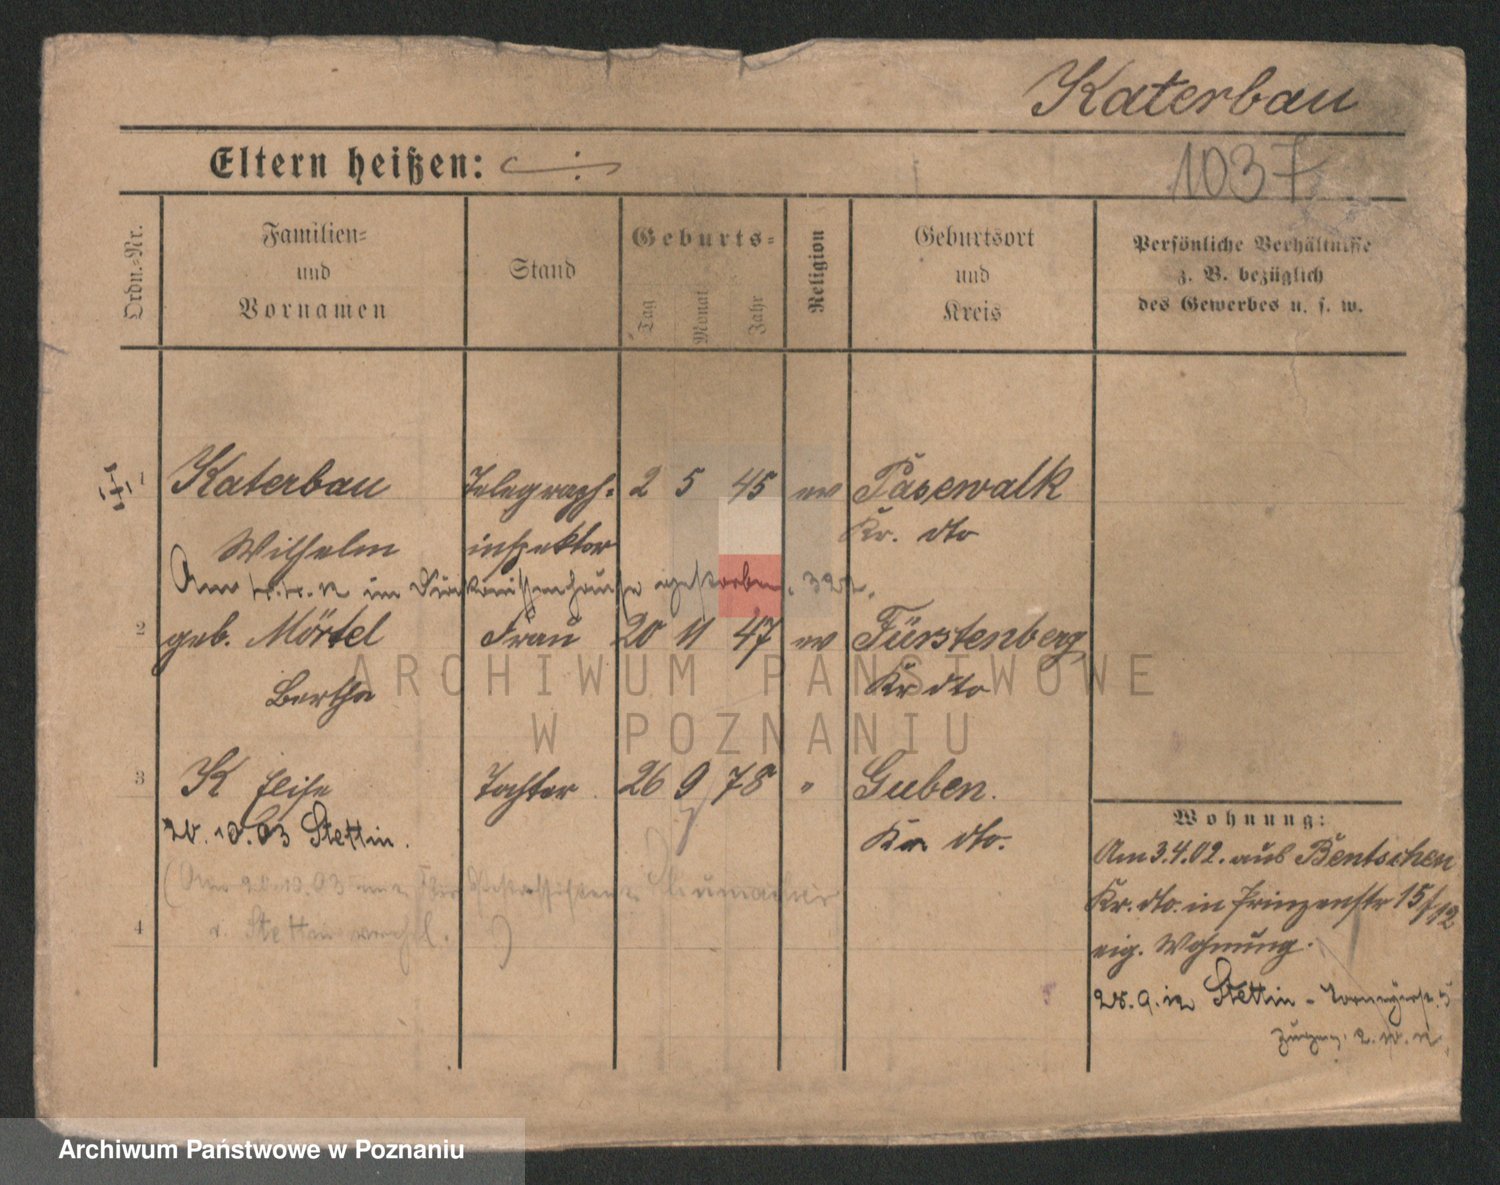 Katerbau
Eltern heißen: -:-
1037
Ordn.=Nr.
Familien=
und
Vornamen
Stand
Geburts=
Tag
Monat
Jahr
Religion
Geburtsort
und
Kreis
Persönliche Verhältnisse
z. B. bezüglich
des Gewerbes u. s. w.
1 Katerbau Telegraph= 2 5 45 ev Pasewalk
Wilhelm inspektor Kr. dto
Am im gestorben. 322.
2 geb. Mörtel Frau 20 11 47 ev Fürstenberg
Bertha Kr dto
3 K Elise Tochter 26 9 78 " Guben.
20.10.03 Stettin. Kr dto.
(Am 20.10.03
n. Stettin )
4
Wohnung:
Am 3.4.02. aus Bentschen
Kr. dto. in Prinzenstr 15/12
eig. Wohnung.
28.9.12 Stettin -
ARCHIWUM PAŃSTWOWE
W POZNANIU
Archiwum Państwowe w Poznaniu